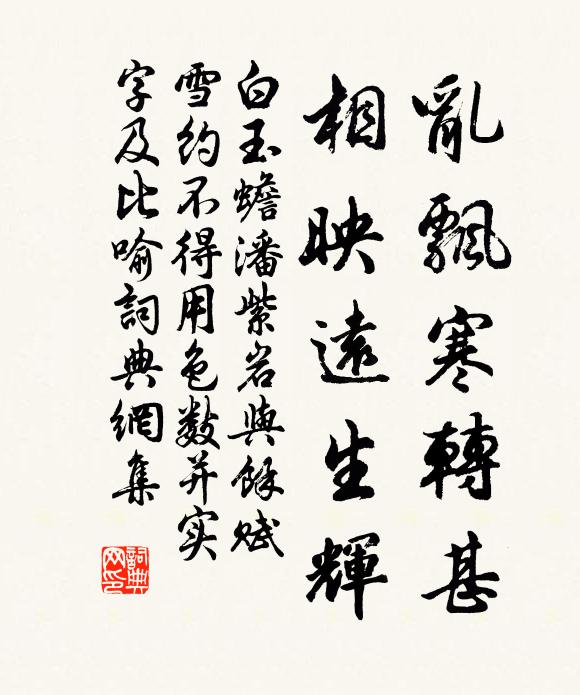 亂飄寒轉甚
相映遠生輝
白玉蟾潘紫岩與餘賦
雪約不得用色數并实
字及比喻詞典網集
詞典网印